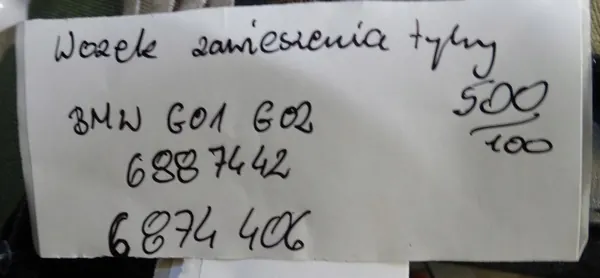 Wozek zawieszenia tylny
500
100
BMW G01 G02
6887442
6874 406